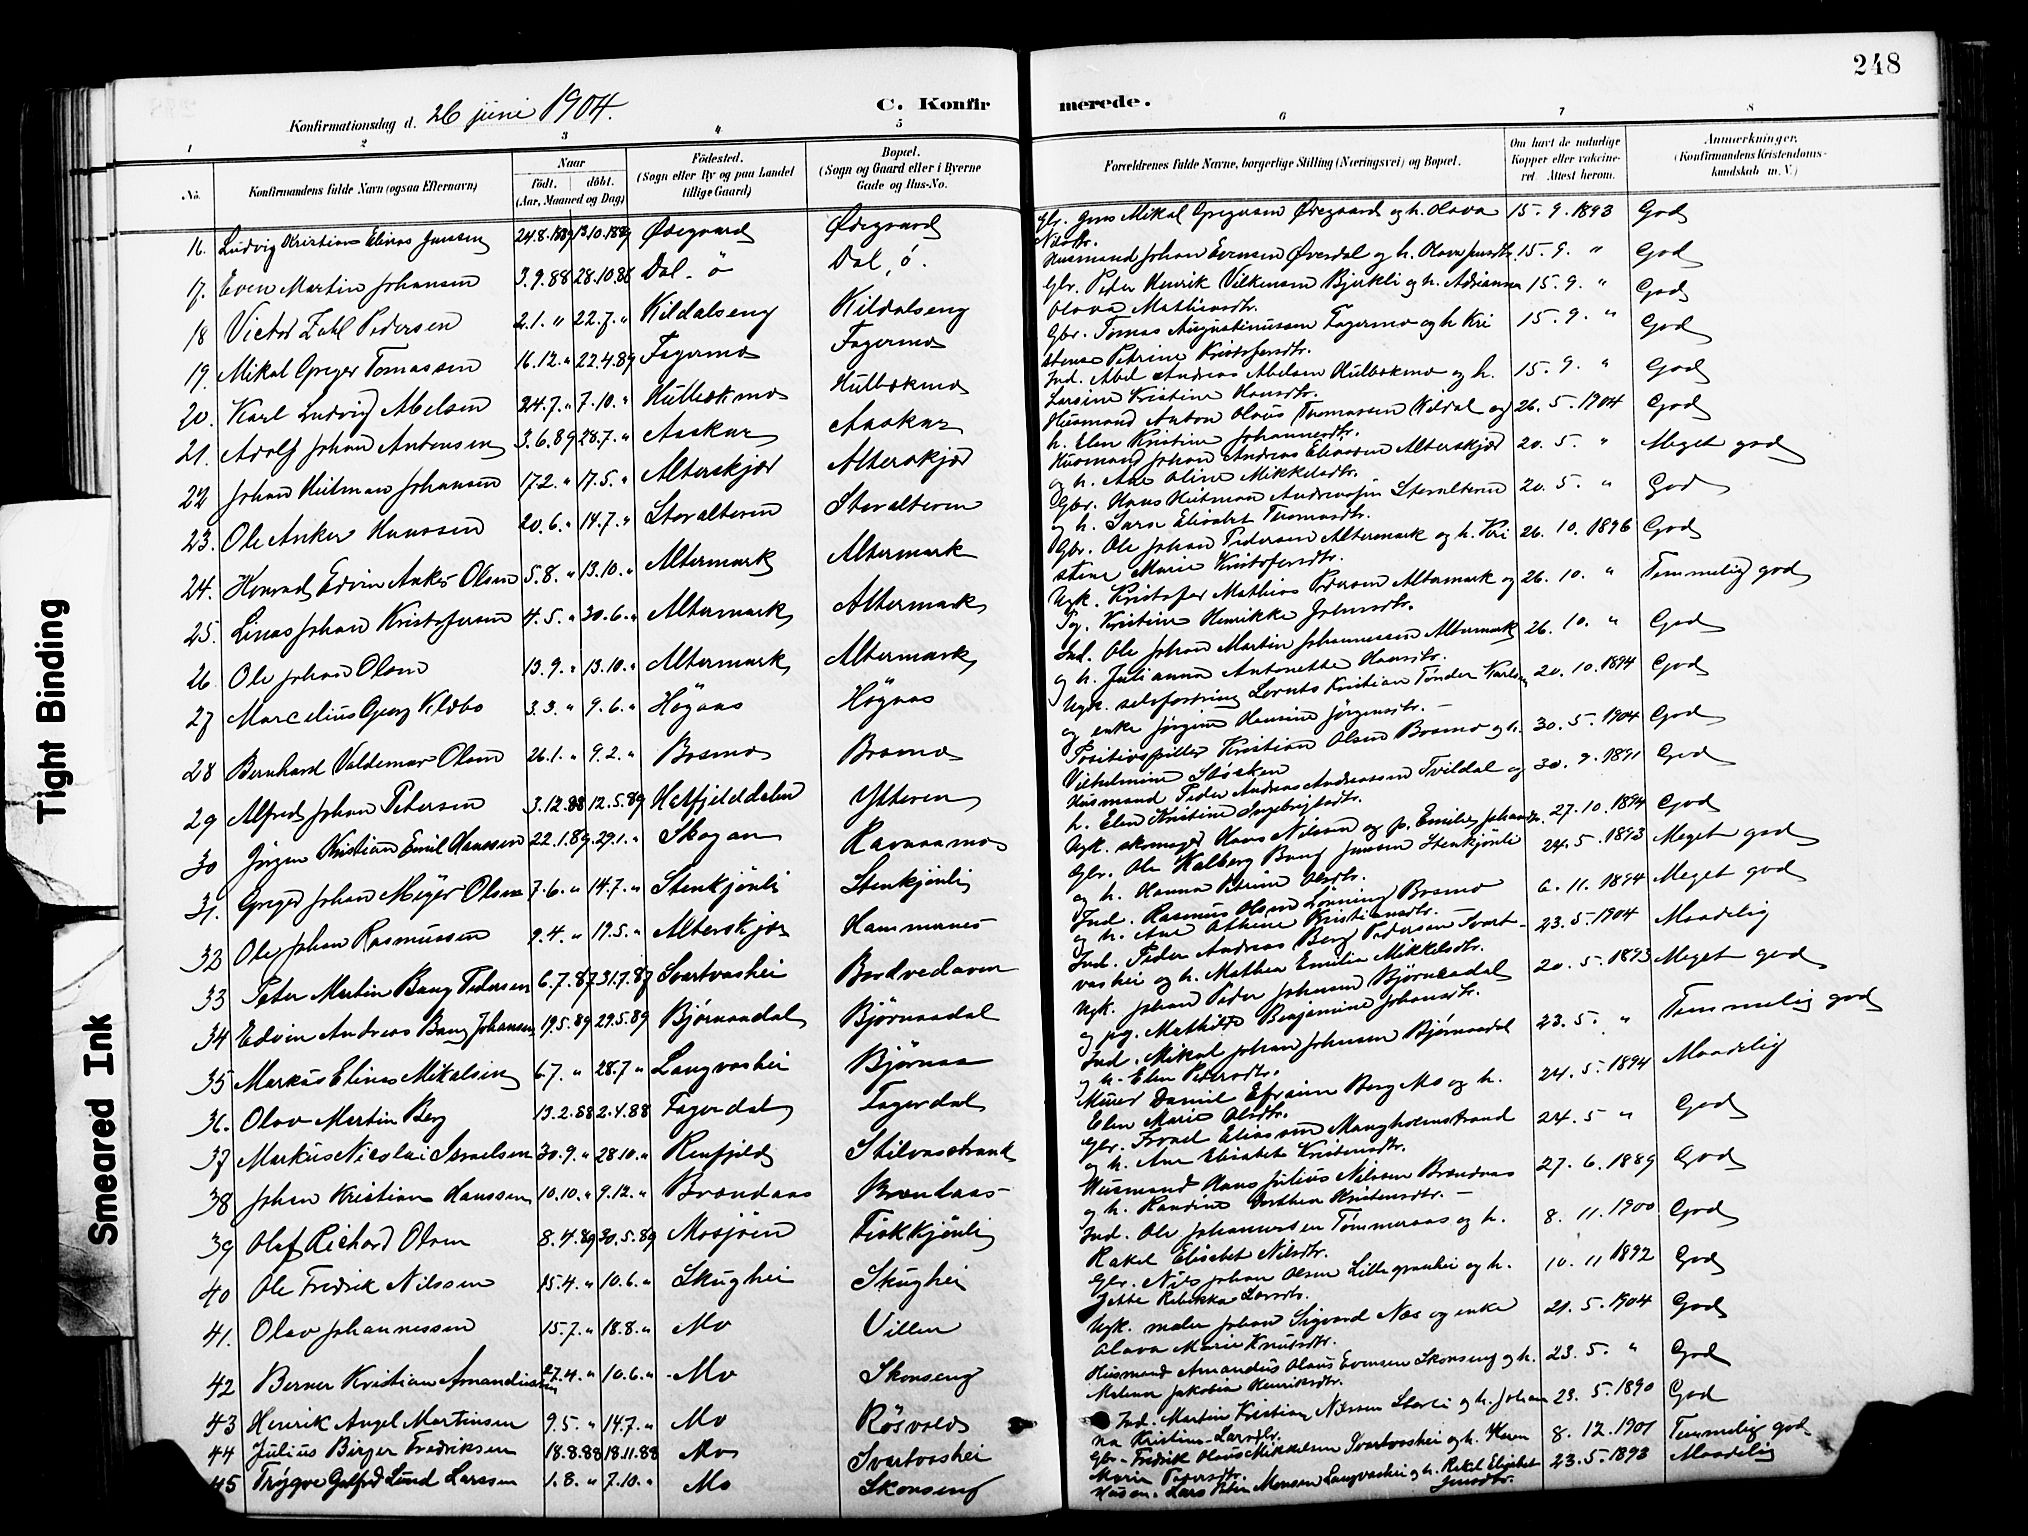 248
Konfirmationsdag d. 26 juni 1904.
C. Konfirmerede.
1 2 3 4 5 6 7 8
No. Konfirmandens fulde Navn (ogsaa Efternavn) Naar födt. döbt. (Aar, Maaned og Dag) Födested. (Sogn eller By og paa Landet tillige Gaard) Bopæl. (Sogn og Gaard eller i Byerne Gade og Hus-No. Forældrenes fulde Navne, borgerlige Stilling (Næringsvei) og Bopæl. Om havt de naturlige Kopper eller vaccineret. Attest herom. Anmærkninger, (Konfirmandens Kristendomskundskab m. V.)
16. Ludvig Kristian Elinas Jenssen 24.8.1889 13.10.1889 Ødegaard Ødegaard Gbr. Jens Mikal Gregersen Ødegaard og h. Olava Nilsdtr. 15.9.1893 God
17. Even Martin Johansen 3.9.88 28.10.88 Dal, ö Dal, ö. Husmand Johan Evensen Øvredal og h. Olava Jensdtr. 15.9. " God
18 Victor Zahl Pedersen 2.1. " 22.7. " Kildalseng Kildalseng Gbr. Peder Henrik Vilkensen Bjukli og h. Adrianna Olava Mathisdtr. 15.9. " God
19. Mikal Greger Tomassen 16.12. " 22.4.89 Fagermo Fagermo Gbr. Tomas Augustinussen Fagermo og h Kristense Petrine Kristofersdtr. 15.9. " God
20. Karl Ludvig Abelsen 24.7. " 7.10. " Hulbækmo Hulbækmo Ind. Abel Andreas Abelsen Hulbækmo og h. Larsine Kristine Hansdtr. 15.9. " God
21. Adolf Johan Antonsen 3.6.89 28.7. " Aaskar Aaskar Husmand Anton Olaus Thomassen Kildal og h. Elen Kristine Johannesdtr. 26.5.1904 God
22 Johan Hitman Johansen 17.2. " 17.5. " Alterskjær Alterskjær Husmand Johan Andreas Eliassen Alterskjær og h. Ane Oline Mikkelsdtr. 20.5. " Meget god
23. Ole Anker Hanssen 20.6. " 14.7. " Storalteren Storalteren Gbr. Hans Hitman Andreassen Storalteren og h. Sara Elisabet Thomasdtr. 20.5. " God
24. Konrad Edvin Anker Olsen 5.8. " 13.10. " Altermark Altermark Gbr. Ole Johan Pedersen Altermark og h. Kristine Marie Kristofersdtr. 26.10.1896 God
25. Linas Johan Kristofersen 4.5. " 30.6. " Altermark Altermark Ugk. Kristofer Mathias Pedersen Altermark og Pg. Kristine Henrikke Johnsdtr. 26.10. " Temmelig god
26. Ole Johan Olsen 13.9. " 13.10. " Altermark Altermark Ind. Ole Johan Martin Johannessen Altermark og h. Julianna Antonette Hansdtr. 26.10. " God
27 Marcelius Georg Klæbo 3.3. " 9.6. " Högaas Högaas Ugk. selvfostring Lornts Kristian Tönder Karlsen og enke Jörgine Hansine Jörgensdtr. 20.10.1894 God
28 Bernhard Valdemar Olsen 26.1. " 9.2. " Bosmo Bosmo Positivspiller Kristian Olsen Bosmo og h. Vilhelmine Stösken 30.5.1904 God
29 Alfred Johan Petersen 3.12.88 12.5.89 Hatfjelddalen Ytteren Husmand Peder Andreas Andreassen Tvildal og h. Elen Kristine Ingebrigtsdtr. 30.9.1891 God
30 Jörgen Kristian Emil Hanssen 22.1.89 29.1. " Skogan Ravnaamo Ugk. skomager Hans Nilsen og p. Emilie Johansdtr. 27.10.1894 God
31. Greger Johan Meyer Olsen 7.6. " 14.7. " Stenkjönli Stenkjönli Gbr. Ole Kolberg Bang Jenssen Stenkjönli og h. Hanna Petrine Olsdtr. 24.5.1893 Meget god
32 Ole Johan Rasmussen 9.4. " 19.5. " Alterskjær Hammernes Ind. Rasmus Olsen Lönning Bosmo og h. Ane Athine Kristiansdtr. 6.11.1894 Meget god
33 Peter Martin Bang Pedersen 6.7.87 31.7.87 Svartvashei Bordvedaven Ind. Peder Andreas Berg Pedersen Svartvashei og h. Mathea Emilia Mikkelsdtr. 23.5.1904 Maadelig
34 Edvin Andreas Bang Johansen 19.5.89 29.5.89 Bjørnaadal Björnaadal Ugk. Johan Peder Johnsen Bjørnaadal og pg. Mathilde Benjamine Johansdtr. 20.5.1893 Meget god
35 Markus Elinas Mikalsen 6.7. " 28.7 " Langvashei Bjørnaa Ind. Mikal Johan Johnsen Bjørnaadal og h. Elen Pedersdtr. 23.5. " Temmelig god
36. Olav Martin Berg 13.2.88 2.4.88 Fagerdal Fagerdal Murer Daniel Efraim Berg Mo og h. Elen Marie Olsdtr. 24.5.1894 Maadelig
37 Markus Nicolai Israelsen 30.9. " 28.10. " Renfjeld Stilvasstrand Gbr. Israel Eliassen Mangholmstrand og h. Ane Elisabet Kristensdtr. 24.5 " God
38 Johan Kristian Hanssen 10.10. " 9.12. " Brændaas Brændaas Husmand Hans Julius Nilssen Brændaas og h. Randine Dorthea Kristensdtr. 27.6.1889 God
39 Olaf Richard Olsen 8.4.89 30.5.89 Mosjöen Fiskkjönli Ind. Ole Johannessen Tömmeraas og h. Rakel Elisabet Nilsdtr. 8.11.1900 God
40 Ole Fredrik Nilssen 15.4. " 10.6. " Skughei Skughei Gbr. Nils Johan Olsen Lillegranhei og h. Jette Rebekka Larsdtr. 10.11 1892 God
41. Olav Johannessen 15.7. " 18.8. " Mo Villen Ugk. maler Johan Sigvard Næs og enke Olava Marie Knutsdtr. 21.5.1904 God
42 Berner Kristian Amandussen 27.4. " 10.6. " Mo Skonseng Husmand Amandus Olaus Evensen Skonseng og h. Malena Jakobia Henriksdtr. 23.5. " God
43 Henrik Angel Martinsen 9.5. " 14.7. " Mo Rösvold Ind. Martin Kristian Nilssen Storli og h. Johanna Kristine Larsdtr. 23.5.1890 God
44 Julius Birger Fredriksen 18.8.88 18.11.88 Mo Svartvashei Gbr. Fredrik Olaus Mikkelsen Svartvashei og h. Maria Pedersdtr. 8.12.1901 Temmelig god
45 Trygve Gotfred Lund Larssen 1.8. " 7.10. " Mo Skonseng Husm. Lars Peter Monsen Langvashei og h. Rakel Elisabet Jensdtr. 23.5.1893 Maadelig
Tight Binding
Smeared Ink